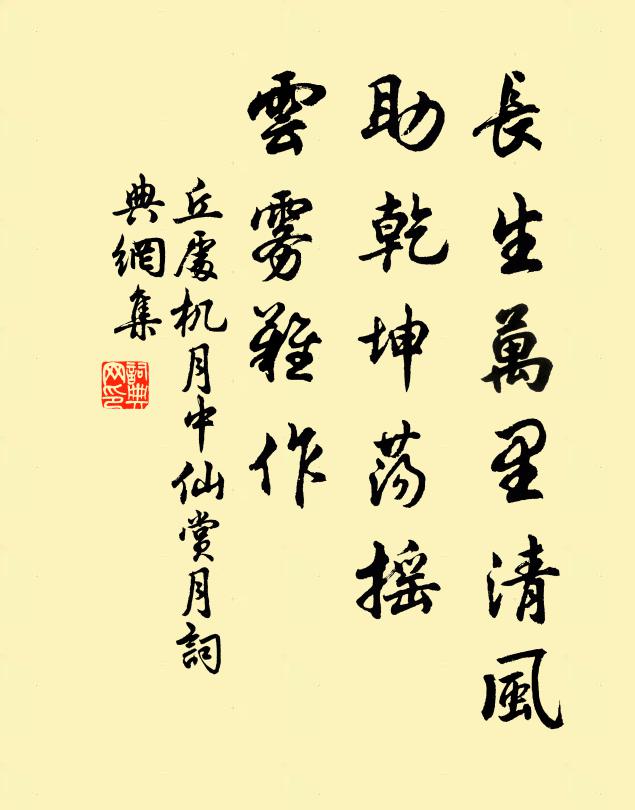 長生萬里清風
助乾坤荡摇
雲雾難作
丘處机月中仙賞月詞
典網集
詞典
网印